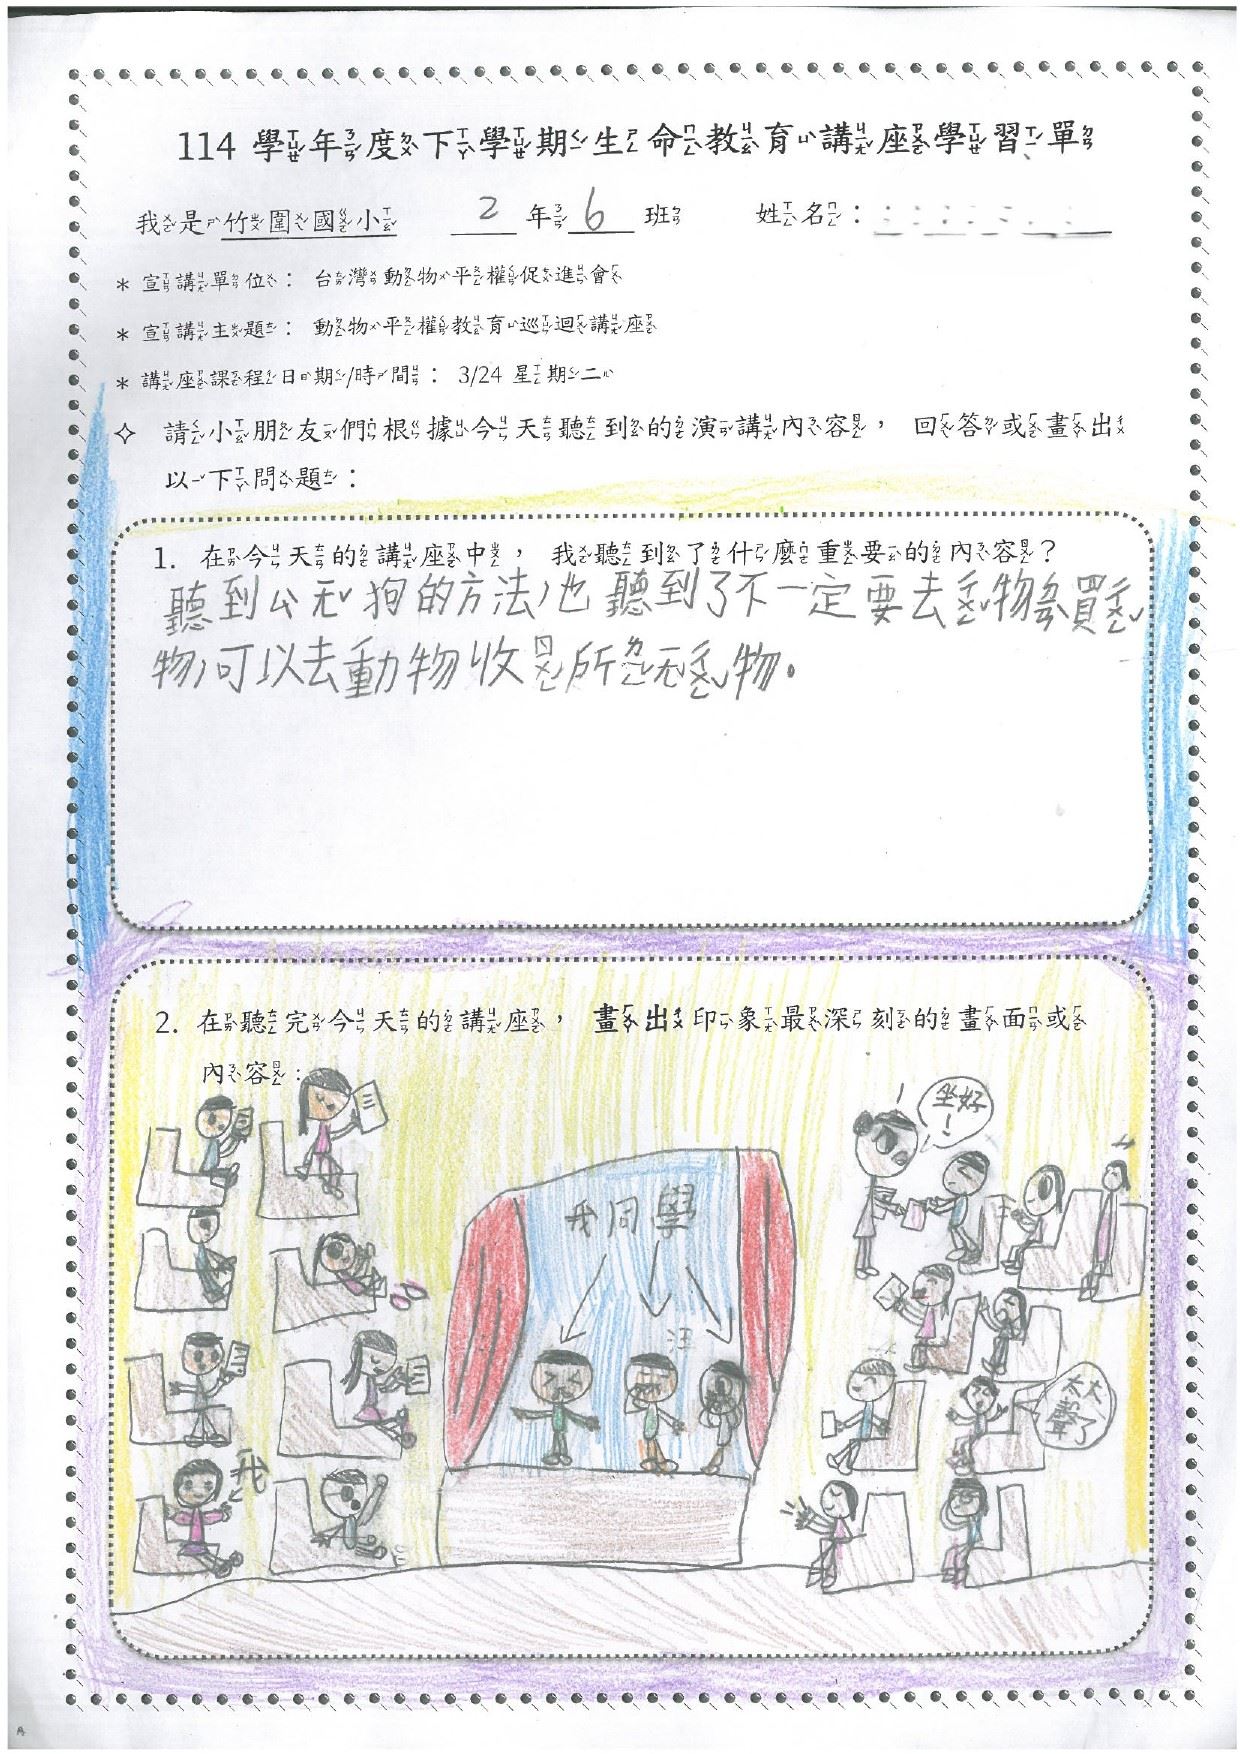 114 學年度下學期生命教育講座學習單
我是竹圍國小 2 年 6 班 姓名：
* 宣講單位： 台灣動物平權促進會
* 宣講主題： 動物平權教育巡迴講座
* 講座課程日期/時間： 3/24 星期二
✧ 請小朋友們根據今天聽到的演講內容， 回答或畫出
以下問題：
1. 在今天的講座中， 我聽到了什麼重要的內容？
聽到公ㄨˊ狗的方法,也聽到了不一定要去ㄔㄨㄥˇ物ㄉㄧㄢˋ買ㄔㄨㄥˇ
物,可以去動物收ㄖㄨㄥˊ所
物。
2. 在聽完今天的講座， 畫出印象最深刻的畫面或
內容：
坐好!
我同學
汪
太大聲了
我